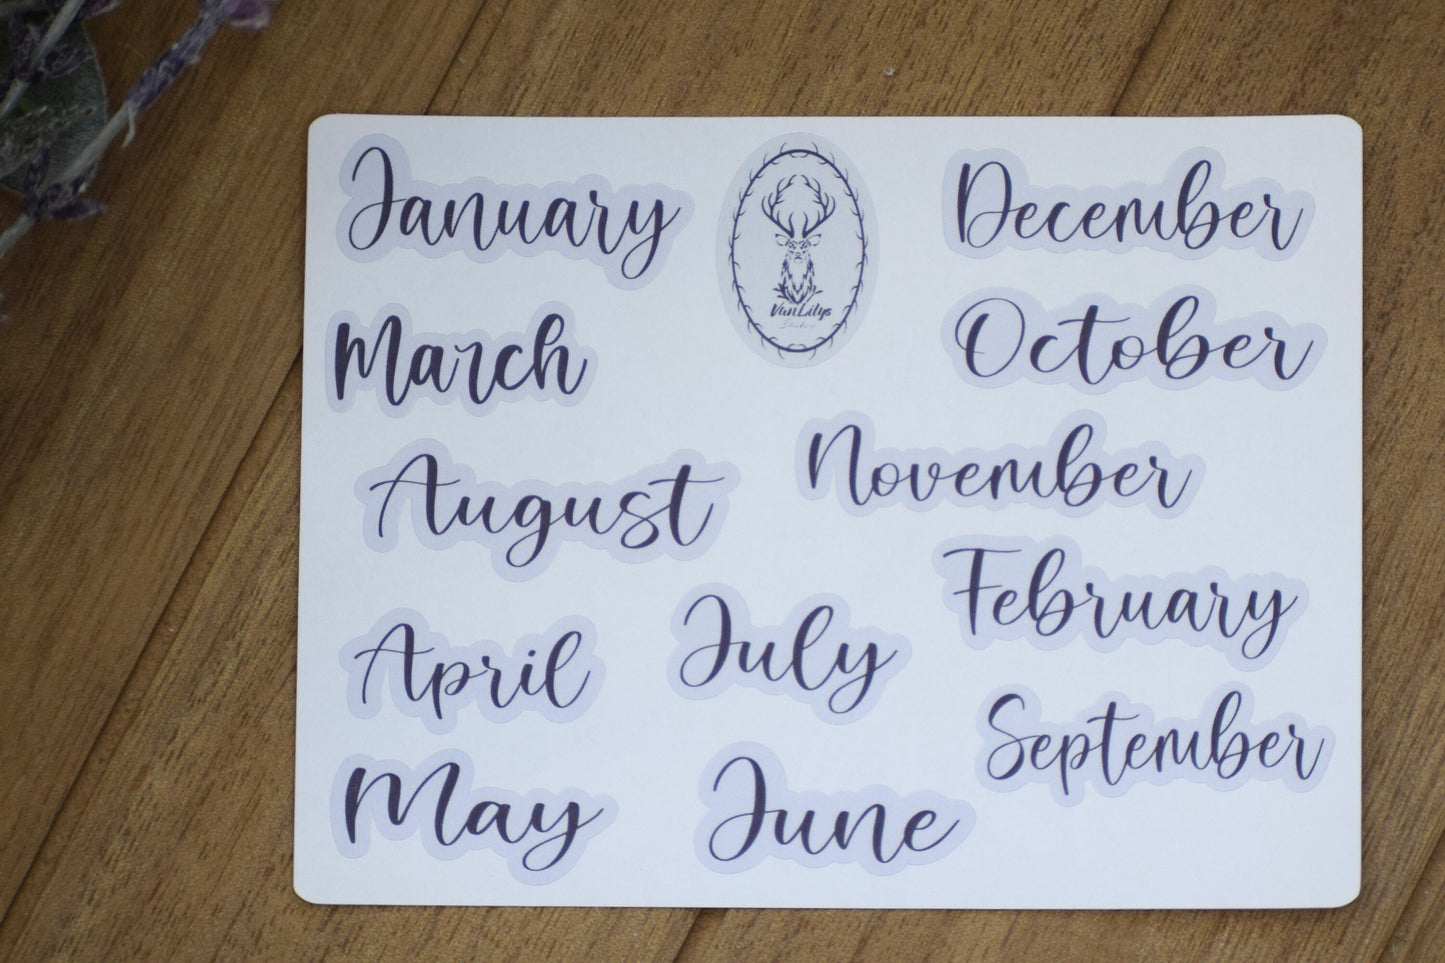 January
March
August
April
May
VanLilys
Stickers
July
June
December
October
November
February
September